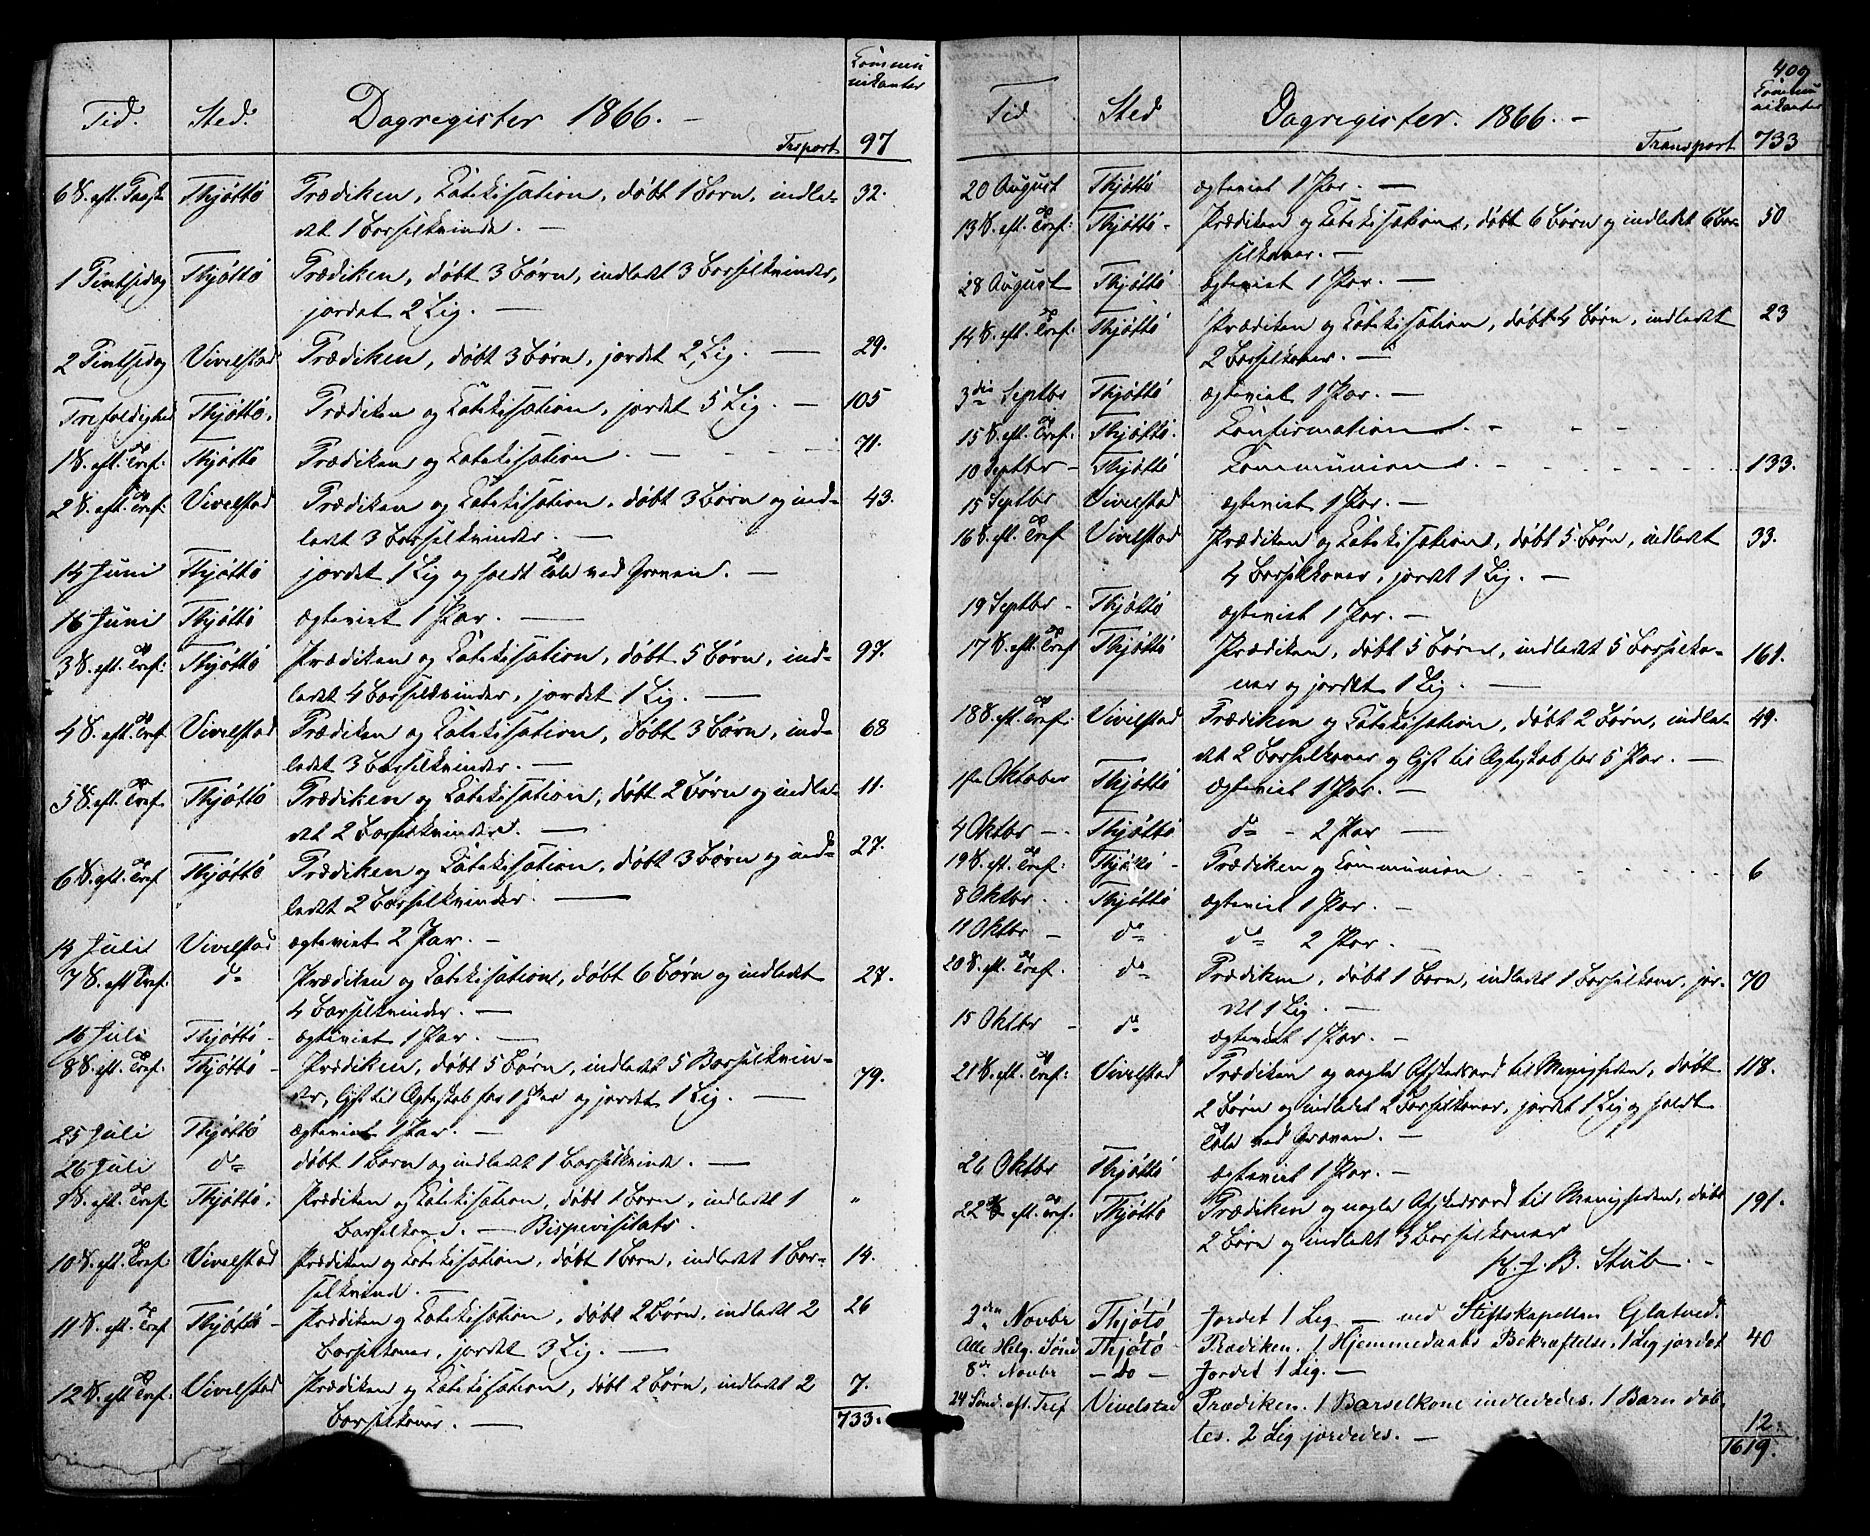 Tid. Sted. Dagregister 1866. — Kommu
nikanter
Trsport 97
6 S. eft. Paask Thjøttø Prædiken, Katekisation, døbt 1 Barn, indle- 32.
det 1 Barselkvinde. —
1 Pintsedag Thjøttø Prædiken, døbt 3 Børn, indledt 3 Barselkvinder,
jordet 2 Lig. —
2 Pintsedag Vivelstad Prædiken, døbt 3 Børn, jordet 2 Lig. — 29.
Trefoldighed Thjøttø. Prædiken og Katekisation, jordet 5 Lig. — 105
1 S. eft. Tref: Thjøttø Prædiken og Katekisation. — 71.
2 S. eft. Tref: Vivelstad Prædiken og Katekisation, døbt 3 Børn og ind- 43.
ledt 3 Barselkvinder. —
14 Juni Thjøttø jordet 1 Lig og holdt Tale ved Graven. —
16 Juni Thjøttø ægteviet 1 Par. —
3 S. eft. Tref: Thjøttø Prædiken og Katekisation, døbt 5 Børn, ind- 97.
ledet 4 Barselkvinder, jordet 1 Lig. —
4 S. eft. Tref Vivelstad Prædiken og Katekisation, døbt 3 Børn, ind- 68
ledet 3 Barselkvinder. —
5 S. eft. Tref. Thjøttø Prædiken og Katekisation, døbt 2 Børn og indle- 11.
det 2 Barselkvinder. —
6 S. eft. Tref Thjøttø Prædiken og Katekisation, døbt 3 Børn og ind- 27.
ledt 2 Barselkvinder. —
14 Juli Vivelstad ægteviet 2 Par. —
7 S. eft Tref: do Prædiken og Katekisation, døbt 6 Børn og indledt 27.
4 Barselkvinder. —
16 Juli Thjøttø - ægteviet 1 Par. —
8 S. eft. Tref: Thjøttø - Prædiken, døbt 5 Børn, indledet 5 Barselkvin- 79.
der, Lyst til Ægteskab for 1 Par og jordet 1 Lig. —
25 Juli Thjøttø ægteviet 1 Par. —
26 Juli do døbt 1 Barn og indledt 1 Barselkvinde. —
9 S. eft. Tref Thjøttø. Prædiken og Katekisation, døbt 1 Barn, indledt 1 "
Barselkone. — Bispevisitats.
10 S. eft. Tref Vivelstad Prædiken og Katekisation, døbt 1 Barn, indledt 1 Bar- 14.
selkvinde. —
11 S. eft. Tref Thjøttø - Prædiken og Katekisation, døbt 2 Børn, indledt 2 26
Barselkoner, jordet 3 Lig. —
12 S. eft Tref: Vivelstad Prædiken og Katekisation, døbt 2 Børn, indledet 2 7.
Barselkoner. —
733.
409
Tid Sted Dagregister. 1866. — Kommu
nikanter
Transport 733
20 August Thjøttø ægteviet 1 Par. —
13 S. eft. Tref: Thjøttø - Prædiken og Katekisation, døbt 6 Børn og indledt 6 Bar- 50
selkoner. —
28 August Thjøttø ægteviet 1 Par. —
14 S. eft. Tref: Thjøttø Prædiken og Katekisation, døbt 4 Børn, indledet 23
2 Barselkoner. —
3die Septbr Thjøttø ægteviet 1 Par. —
15 S. eft. Tref: Thjøttø. Confirmation. - - -
10 Septbr - Thjøttø Communion. - - - - 133.
15 Septbr Vivelstad ægteviet 1 Par. —
16 S. eft. Tref Vivelstad Prædiken og Katekisation, døbt 5 Børn, indledet 33.
4 Barselkoner, jordet 1 Lig. —
19 Septbr - Thjøttø ægteviet 1 Par. —
17 S. eft. Tref Thjøttø Prædiken, døbt 5 Børn, indledet 5 Barselko- 161.
ner og jordet 1 Lig. —
18 S. eft. Tref: Vivelstad Prædiken og Katekisation, døbt 2 Børn, indle- 49.
det 2 Barselkoner og Lyst til Ægteskab for 5 Par. —
1ste Oktober Thjøttø ægteviet 1 Par. —
4 Oktbr - Thjøttø do - 2 Par —
19 S. eft. Tref: Thjøttø - Prædiken og Communion - - - - 6
8 Oktbr. Thjøttø ægteviet 1 Par. —
11 Oktbr - do do 2 Par. —
20 S. eft. Tref. do Prædiken, døbt 1 Barn, indledt 1 Barselkone, jor- 70
det 1 Lig. —
15 Oktbr - do ægteviet 1 Par. —
21 S. eft. Tref: Vivelstad Prædiken og nogle Afskedsord til Menigheden, døbt 118.
2 Børn og indledet 2 Barselkoner, jordet 1 Lig og holdt
Tale ved Graven. —
26 Oktbr Thjøttø ægteviet 1 Par. —
22 S. eft. Tref. Thjøttø Prædiken og nogle Afskedsord til Menigheden, døbt 191.
2 Børn og indledt 3 Barselkoner
B. Stub. -
2den Novbr Thjøtø Jordet 1 Lig — ved Stiftskapellan Glatved.
Alle Helg. Sønd Thjøtø - Prædiken. 1 Hjemmedaabs Bekræftelse, 1 Lig jordet 40
8de Novbr - do - Jordet 1 Lig. —
24 Sønd. eft. Tref Vivelstad Prædiken. 1 Barselkone indlededes. 1 Barn døb-
tes. 2 Lig jordedes. — 12.
1619.